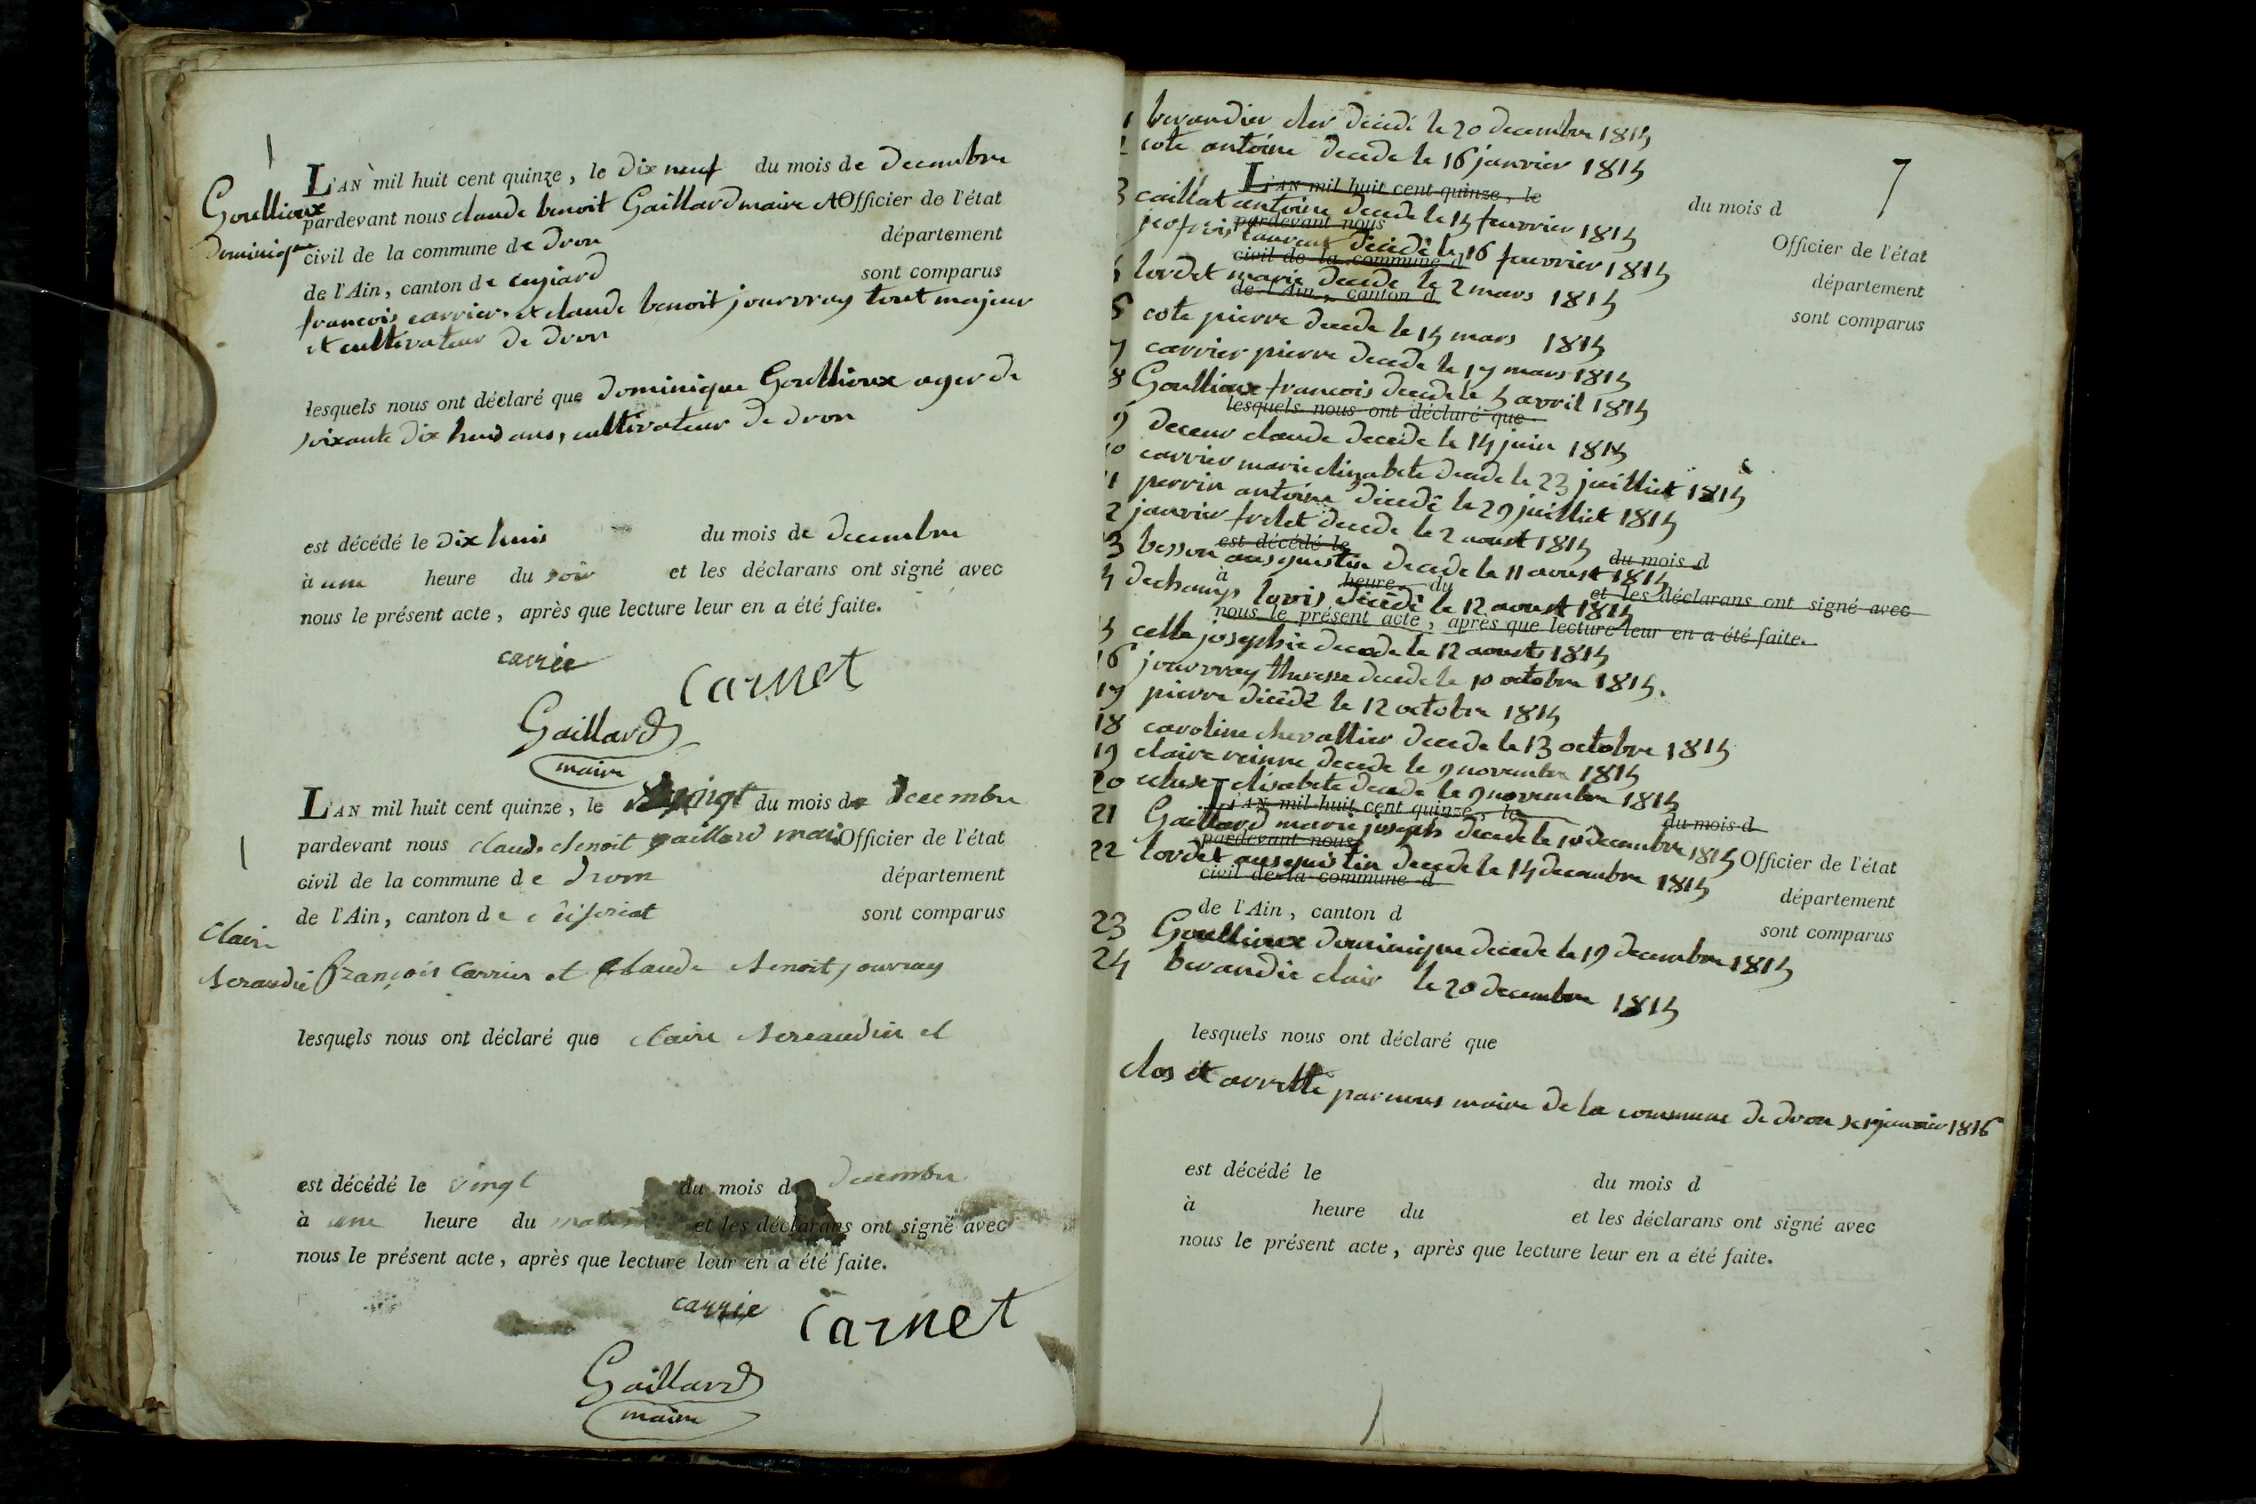 1
L'AN mil huit cent quinze, le dix neuf du mois de decembre
Goullioux
pardevant nous claude benoit Gaillard maire et Officier de l'état
Dominique
civil de la commune de dron département
de l'Ain, canton de ceyziard sont comparus
francois carrier et claude benoit jouvray tout majeur
et cultivateur de dron
lesquels nous ont déclaré que dominique Goullioux ager de
soixante dix huid ans, cultivateur de dron
est décédé le dix huit du mois de decembre
à une heure du soir et les déclarans ont signé avec
nous le présent acte, après que lecture leur en a été faite.
carrie
Carnet
Gaillard
maire
L'AN mil huit cent quinze, le vingt du mois de decembre
pardevant nous claude benoit gaillard maire Officier de l'état
1
civil de la commune de drom département
de l'Ain, canton de sont comparus
claire
beraudie
françois Carrier et claude benoit jouvray
lesquels nous ont déclaré que claire beraudier et
est décédé le vingt du mois d decembre
à une heure du matin et les déclarans ont signé avec
nous le présent acte, après que lecture leur en a été faite.
carrie
Carnet
Gaillard
maire
7
1 berandier cler decedé le 20 decembre 1815
2 cote antoine decede le 16 janvier 1815
L'AN mil huit cent quinze, le du mois d
3 caillat antoine decede le 15 feuvrier 1815
pardevant nous Officier de l'état
laurent decedé le 16 feuvrier 1815
civil de la commune d département
5 lordet marie decede le 2 mars 1815
de l'Ain, canton d sont comparus
6 cote pierre decede le 15 mars 1815
7 carrier pierre decede le 17 mars 1815
8 Goullioux francois decede le 5 avril 1815
lesquels nous ont déclaré que
9 deceur claude decede le 14 juin 1815
10 carrier marie elizabete decede le 23 juilliet 1815
11 perrin antoine decedé le 29 juilliet 1815
12 janvier frelet decede le 2 aoust 1815
est décédé le du mois d
13 besson augustin decede le 11 aoust 1815
à heure du et les déclarans ont signé avec
14 dechamps lovis decedé le 12 aoust 1815
nous le présent acte, après que lecture leur en a été faite.
15 celle josephie decede le 12 aoust 1815
16 jouvray theresse decede le 10 octobre 1815.
17 pierre decedé le 12 octobre 1815
18 caroline chevallier decede le 13 octobre 1815
19 claire reinne decede le 9 novembre 1815
20 elisabete decede le 9 novembre 1815
L'AN mil huit cent quinze, le du mois d
21 Gaillard marie joseph decede le 10 decembre 1815
pardevant nous Officier de l'état
22 lordet augustin decede le 14 decembre 1815
civil de la commune d département
de l'Ain, canton d sont comparus
23 Goullioux dominique decede le 19 decembre 1815
24 berandie clair le 20 decembre 1815
lesquels nous ont déclaré que
clos et arretté par nous maire de la commune de dron le 1 janvier 1816
est décédé le du mois d
à heure du et les déclarans ont signé avec
nous le présent acte, après que lecture leur en a été faite.